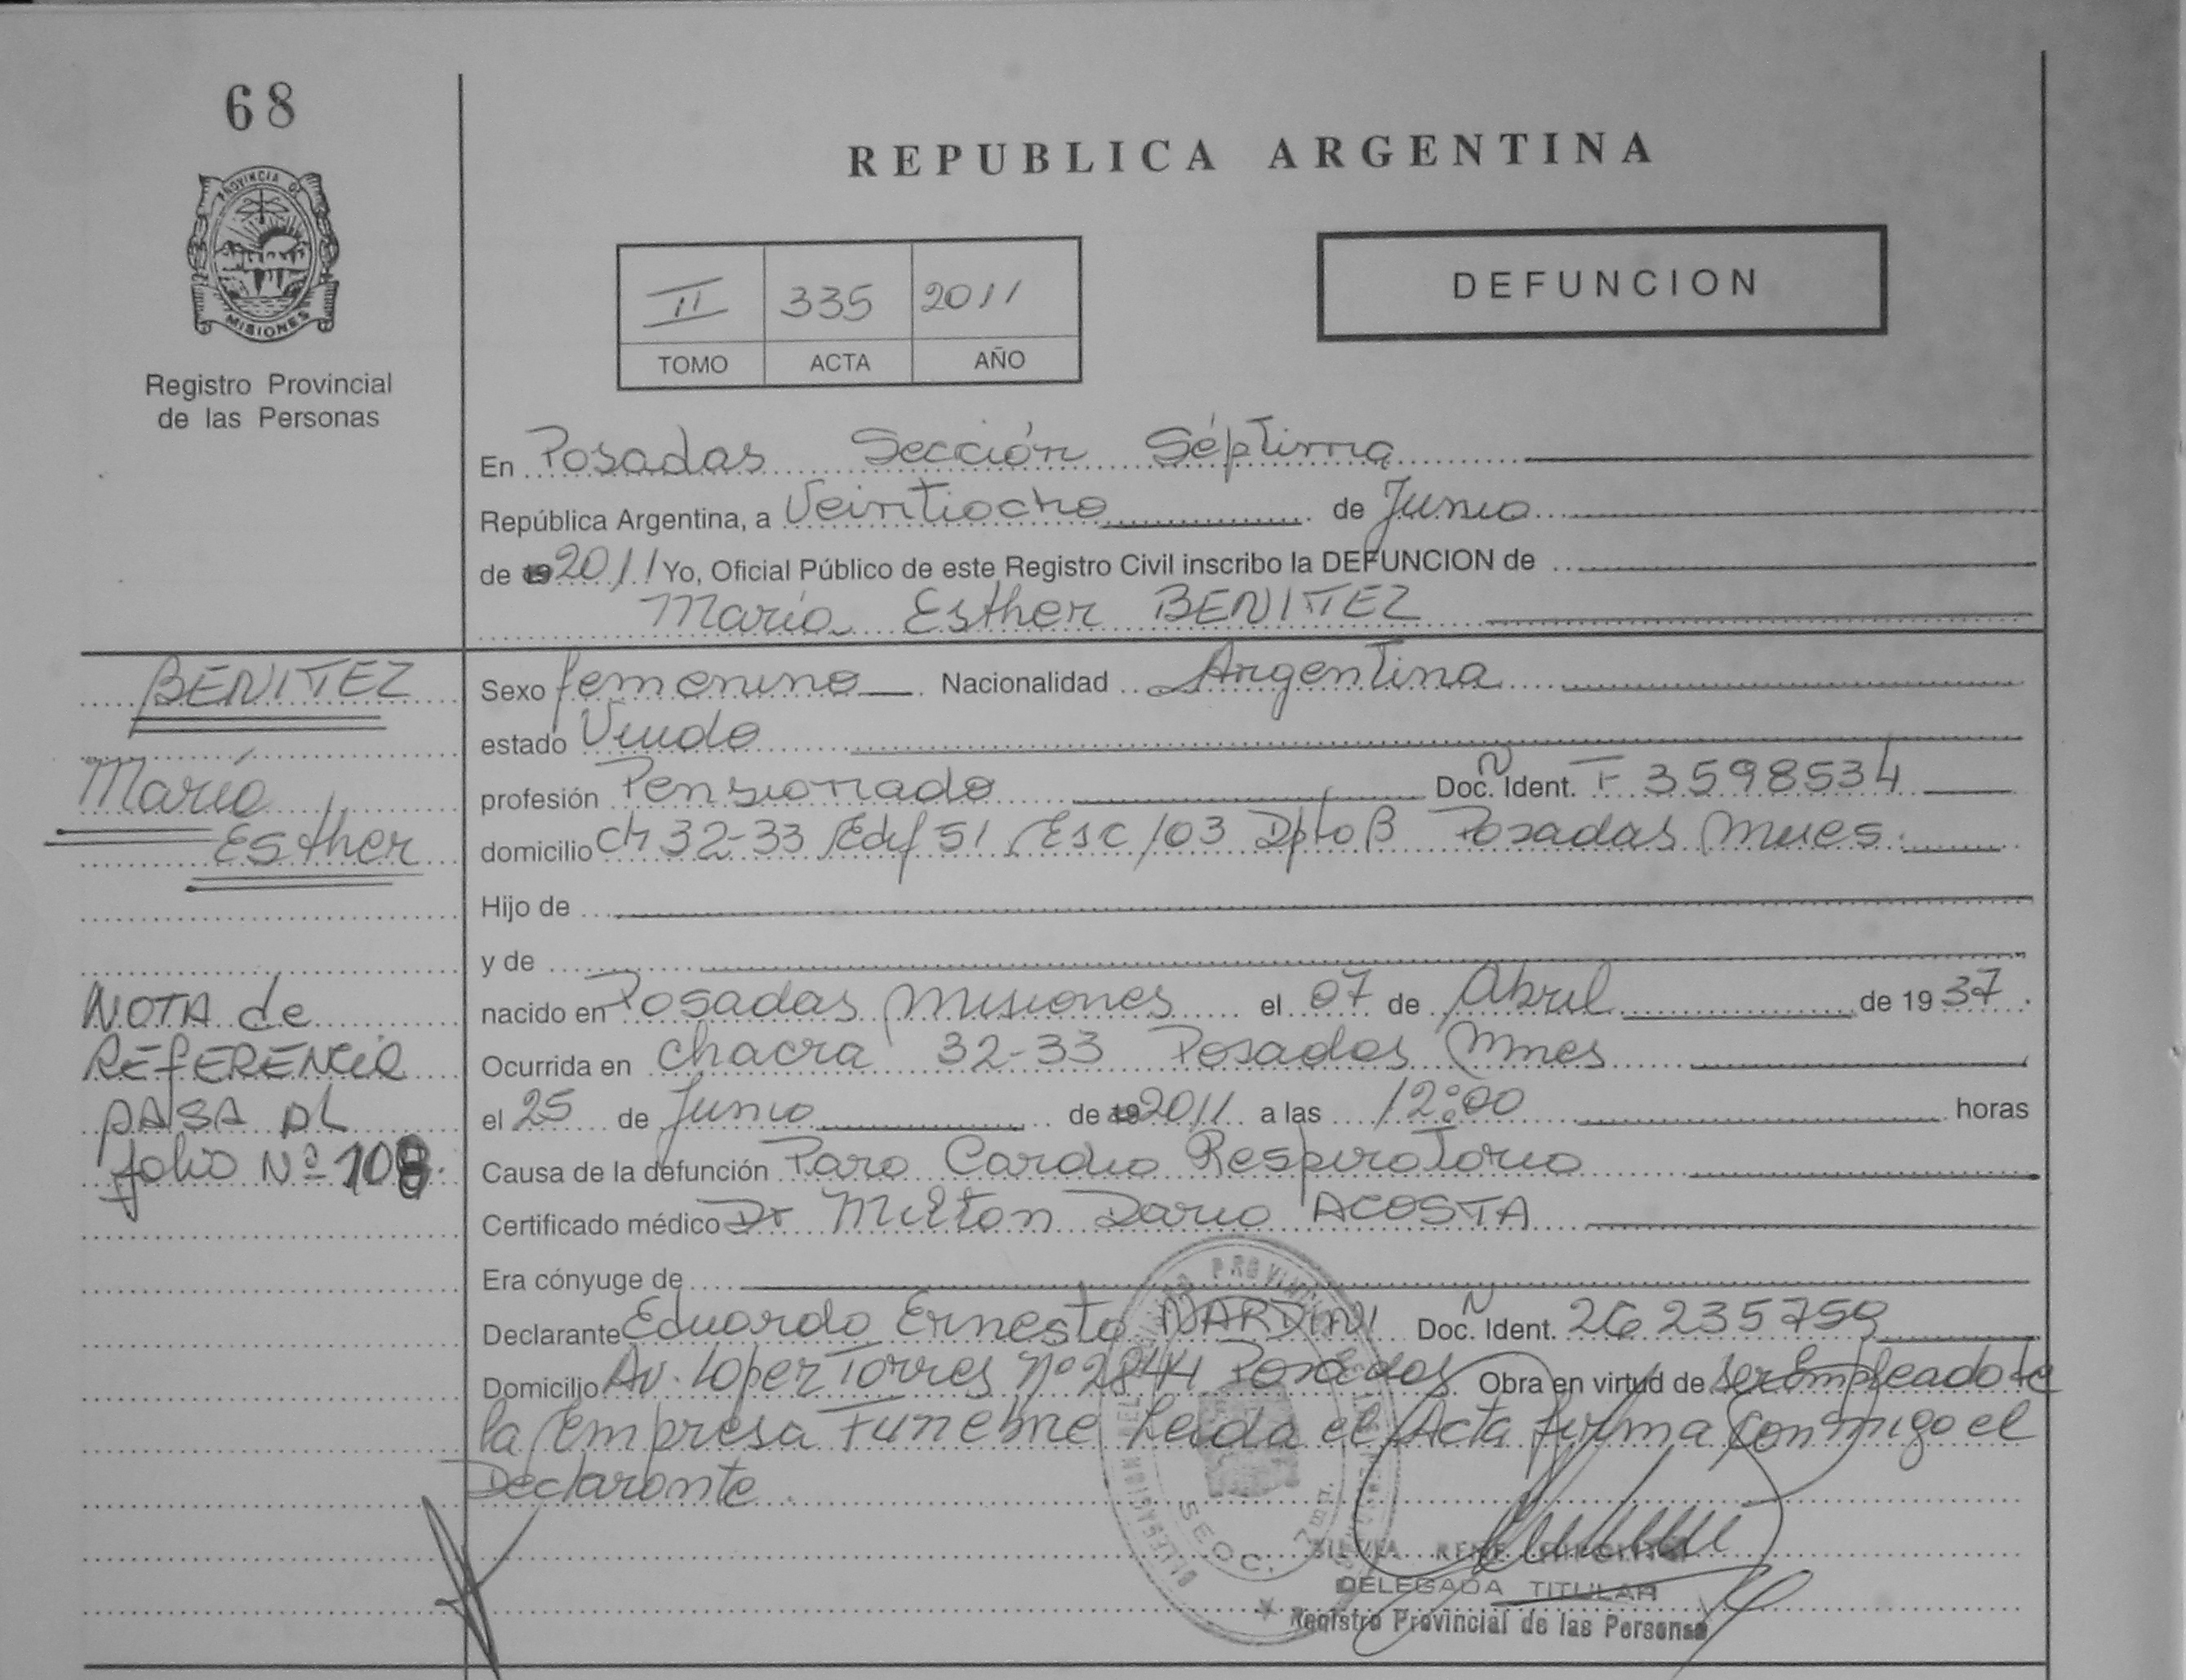 68
PROVINCIA DE
MISIONES
Registro Provincial
de las Personas
REPUBLICA ARGENTINA
DEFUNCION
II 335 2011
TOMO ACTA AÑO
En Posadas Sección Séptima
República Argentina, a Veintiocho de Junio
de 19 2011 Yo, Oficial Público de este Registro Civil inscribo la DEFUNCION de
María Esther BENITEZ
BENITEZ
María
Esther
NOTA de
REFERENCIA
PASA AL
folio Nº 108.
Sexo femenino Nacionalidad Argentina
estado Viuda
profesión Pensionada Doc. Ident. F 3598534
domicilio Ch 32-33 Edf 51 Esc 103 Dpto B Posadas Mnes.
Hijo de
y de
nacido en Posadas Misiones el 07 de Abril de 1937.
Ocurrida en chacra 32-33 Posadas Mnes
el 25 de Junio de 19 2011 a las 12:00 horas
Causa de la defunción Paro Cardio Respiratorio
Certificado médico Dr Milton Dario ACOSTA
Era cónyuge de
Declarante Eduardo Ernesto NARDINI Doc. Ident. 26 235759
Domicilio Av. Lopez Torres Nº 2844 Posadas Obra en virtud de ser Empleado de
la Empresa Funebre Leida el Acta firma conmigo el
Declarante.
SECC. 7ma.
SILVIA RENE
DELEGADA TITULAR
Registro Provincial de las Personas